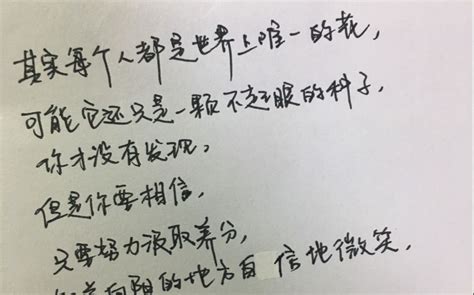 其实每个人都是世界上唯一的花,
可能它还只是一颗不起眼的种子,
你才没有发现,
但是你要相信,
只要努力汲取养分,
向阳的地方自信地微笑,